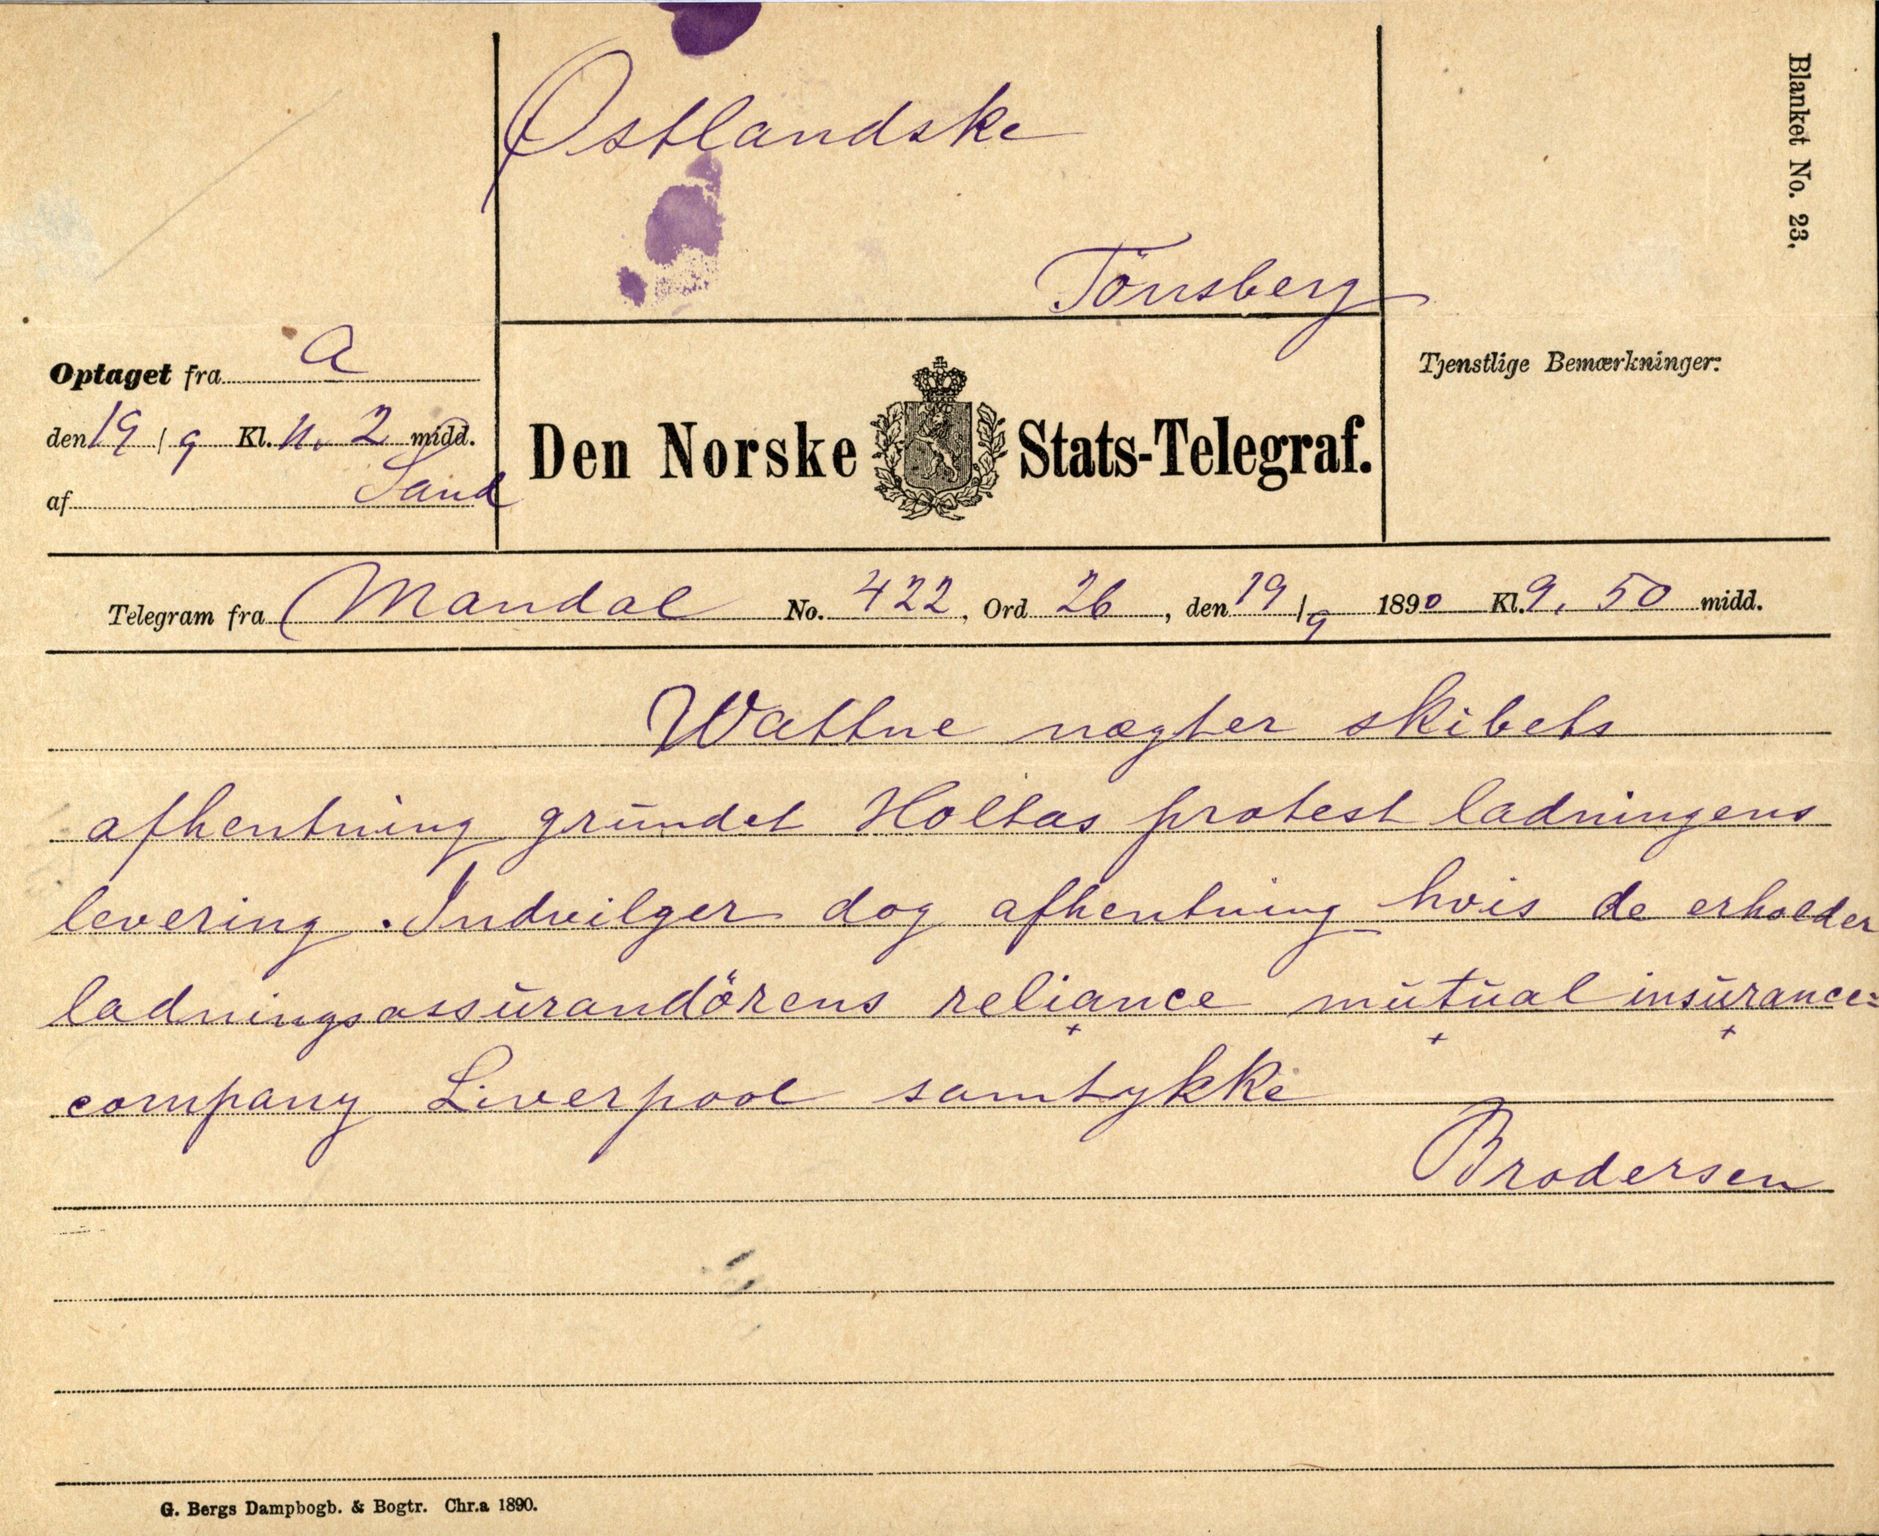 Østlandske
Tönsberg
Blanket No. 23.
Optaget fra A
den 19/9 Kl. 11. 2 midd.
af Sand
Den Norske Stats-Telegraf.
Tjenstlige Bemærkninger:
Telegram fra Mandal No. 422, Ord 26, den 19/9 1890 Kl. 9. 50 midd.
Wattne nægter skibets
afhentning grundet Holtas protest ladningens
levering. Indvilger dog afhentning hvis de erholder
ladningsassurandörens reliance mutual insurance=
company Liverpool samtykke
Brodersen
G. Bergs Dampbogb. & Bogtr. Chr.a 1890.